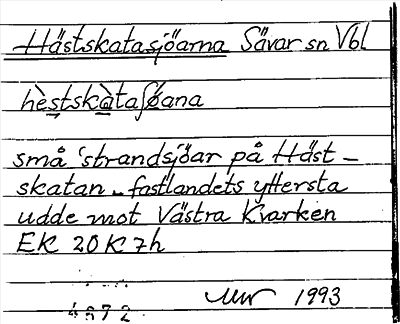 Hästskatasjöarna Sävar sn Vbl
hèstskàtaʃǿana
små strandsjöar på Häst-
skatan - fastlandets yttersta
udde mot Västra Kvarken
EK 20K7h
1993